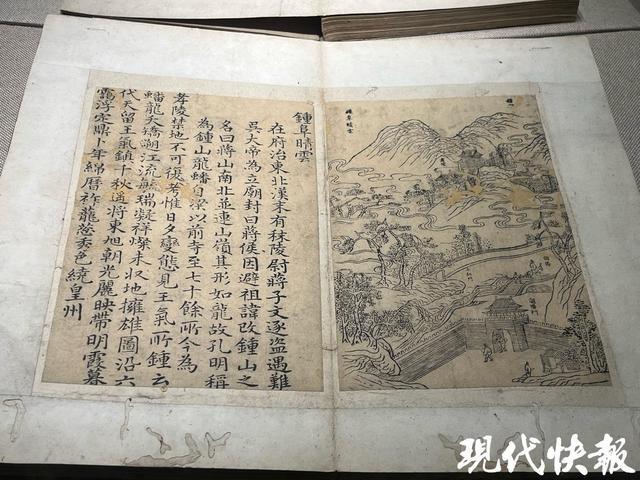 鍾阜晴雲
在府治東北漢末有秣陵尉蔣子文逐盜遇難
吳大帝為立廟封曰蔣侯因避祖諱改鍾山之
名曰蔣山南北並連山嶺其形如龍故孔明稱
為鍾山龍蟠自梁以前寺至七十餘所今為
孝陵禁地不可復考惟日夕變態見王氣所鍾云
蟠龍天矯遡江流毓瑞凝祥燦未収地擁雄圖沿六
代天留王氣鎮千秋遙將東旭朝光麗映帶明霞暮
靄浮定鼎卜年綿曆祚龍蔥秀色繞皇州
鍾阜晴雲
現代快報